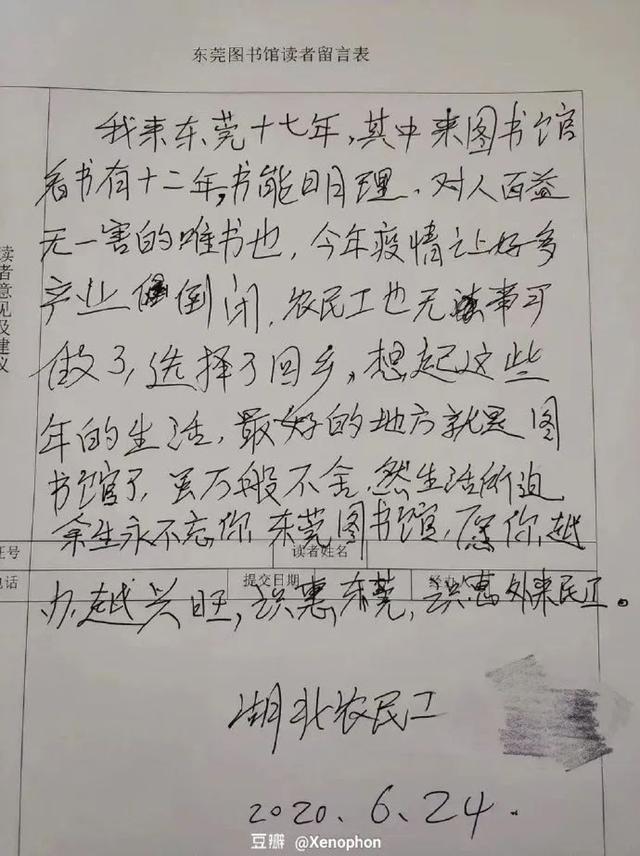 东莞图书馆读者留言表
我来东莞十七年，其中来图书馆
看书有十二年，书能明理、对人百益
无一害的唯书也，今年疫情让好多
产业倒闭，农民工也无事可
做了，选择了回乡，想起这些
年的生活，最好的地方就是图
书馆了，虽万般不舍，然生活所迫
余生永不忘你，东莞图书馆，愿你越
办越兴旺，识惠东莞，识惠外来民工。
湖北农民工
2020.6.24.
读者意见及建议
证号
读者姓名
电话
提交日期
豆瓣 @Xenophon